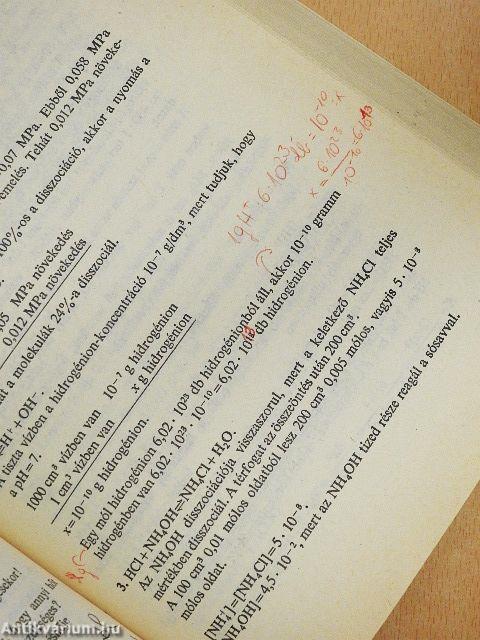 0,07 MPa. Ebből 0,058 MPa
emelés. Tehát 0,012 MPa növeke-
100%-os a disszociáció, akkor a nyomás a
MPa növekedés
0,012 MPa növekedés
a molekulák 24%-a disszociál.
H⁺ + OH⁻.
tiszta vízben a hidrogénion-koncentráció 10⁻⁷ g/dm³, mert tudjuk, hogy
a pH = 7.
1000 cm³ vízben van 10⁻⁷ g hidrogénion
1 cm³ vízben van x g hidrogénion
x = 10⁻¹⁰ g hidrogénion.
Egy mól hidrogénion 6,02 · 10²³ db hidrogénionból áll, akkor 10⁻¹⁰ gramm
hidrogénben van 6,02 · 10²³ · 10⁻¹⁰ = 6,02 · 10¹³ db hidrogénion.
1g H⁺ : 6·10²³ db = 10⁻¹⁰ : x
x = 6·10²³
10⁻¹⁰ = 6·10¹³
3. HCl + NH₄OH = NH₄Cl + H₂O.
Az NH₄OH disszociációja visszaszorul, mert a keletkező NH₄Cl teljes
mértékben disszociál. A térfogat az összeöntés után 200 cm³.
A 100 cm³ 0,01 mólos oldatból lesz 200 cm³ 0,005 mólos, vagyis 5 · 10⁻³
mólos oldat.
[NH₄⁺] = [NH₄Cl] = 5 · 10⁻³.
NH₄OH] = 4,5 · 10⁻², mert az NH₄OH tized része reagál a sósavval.
Antikvarium.hu